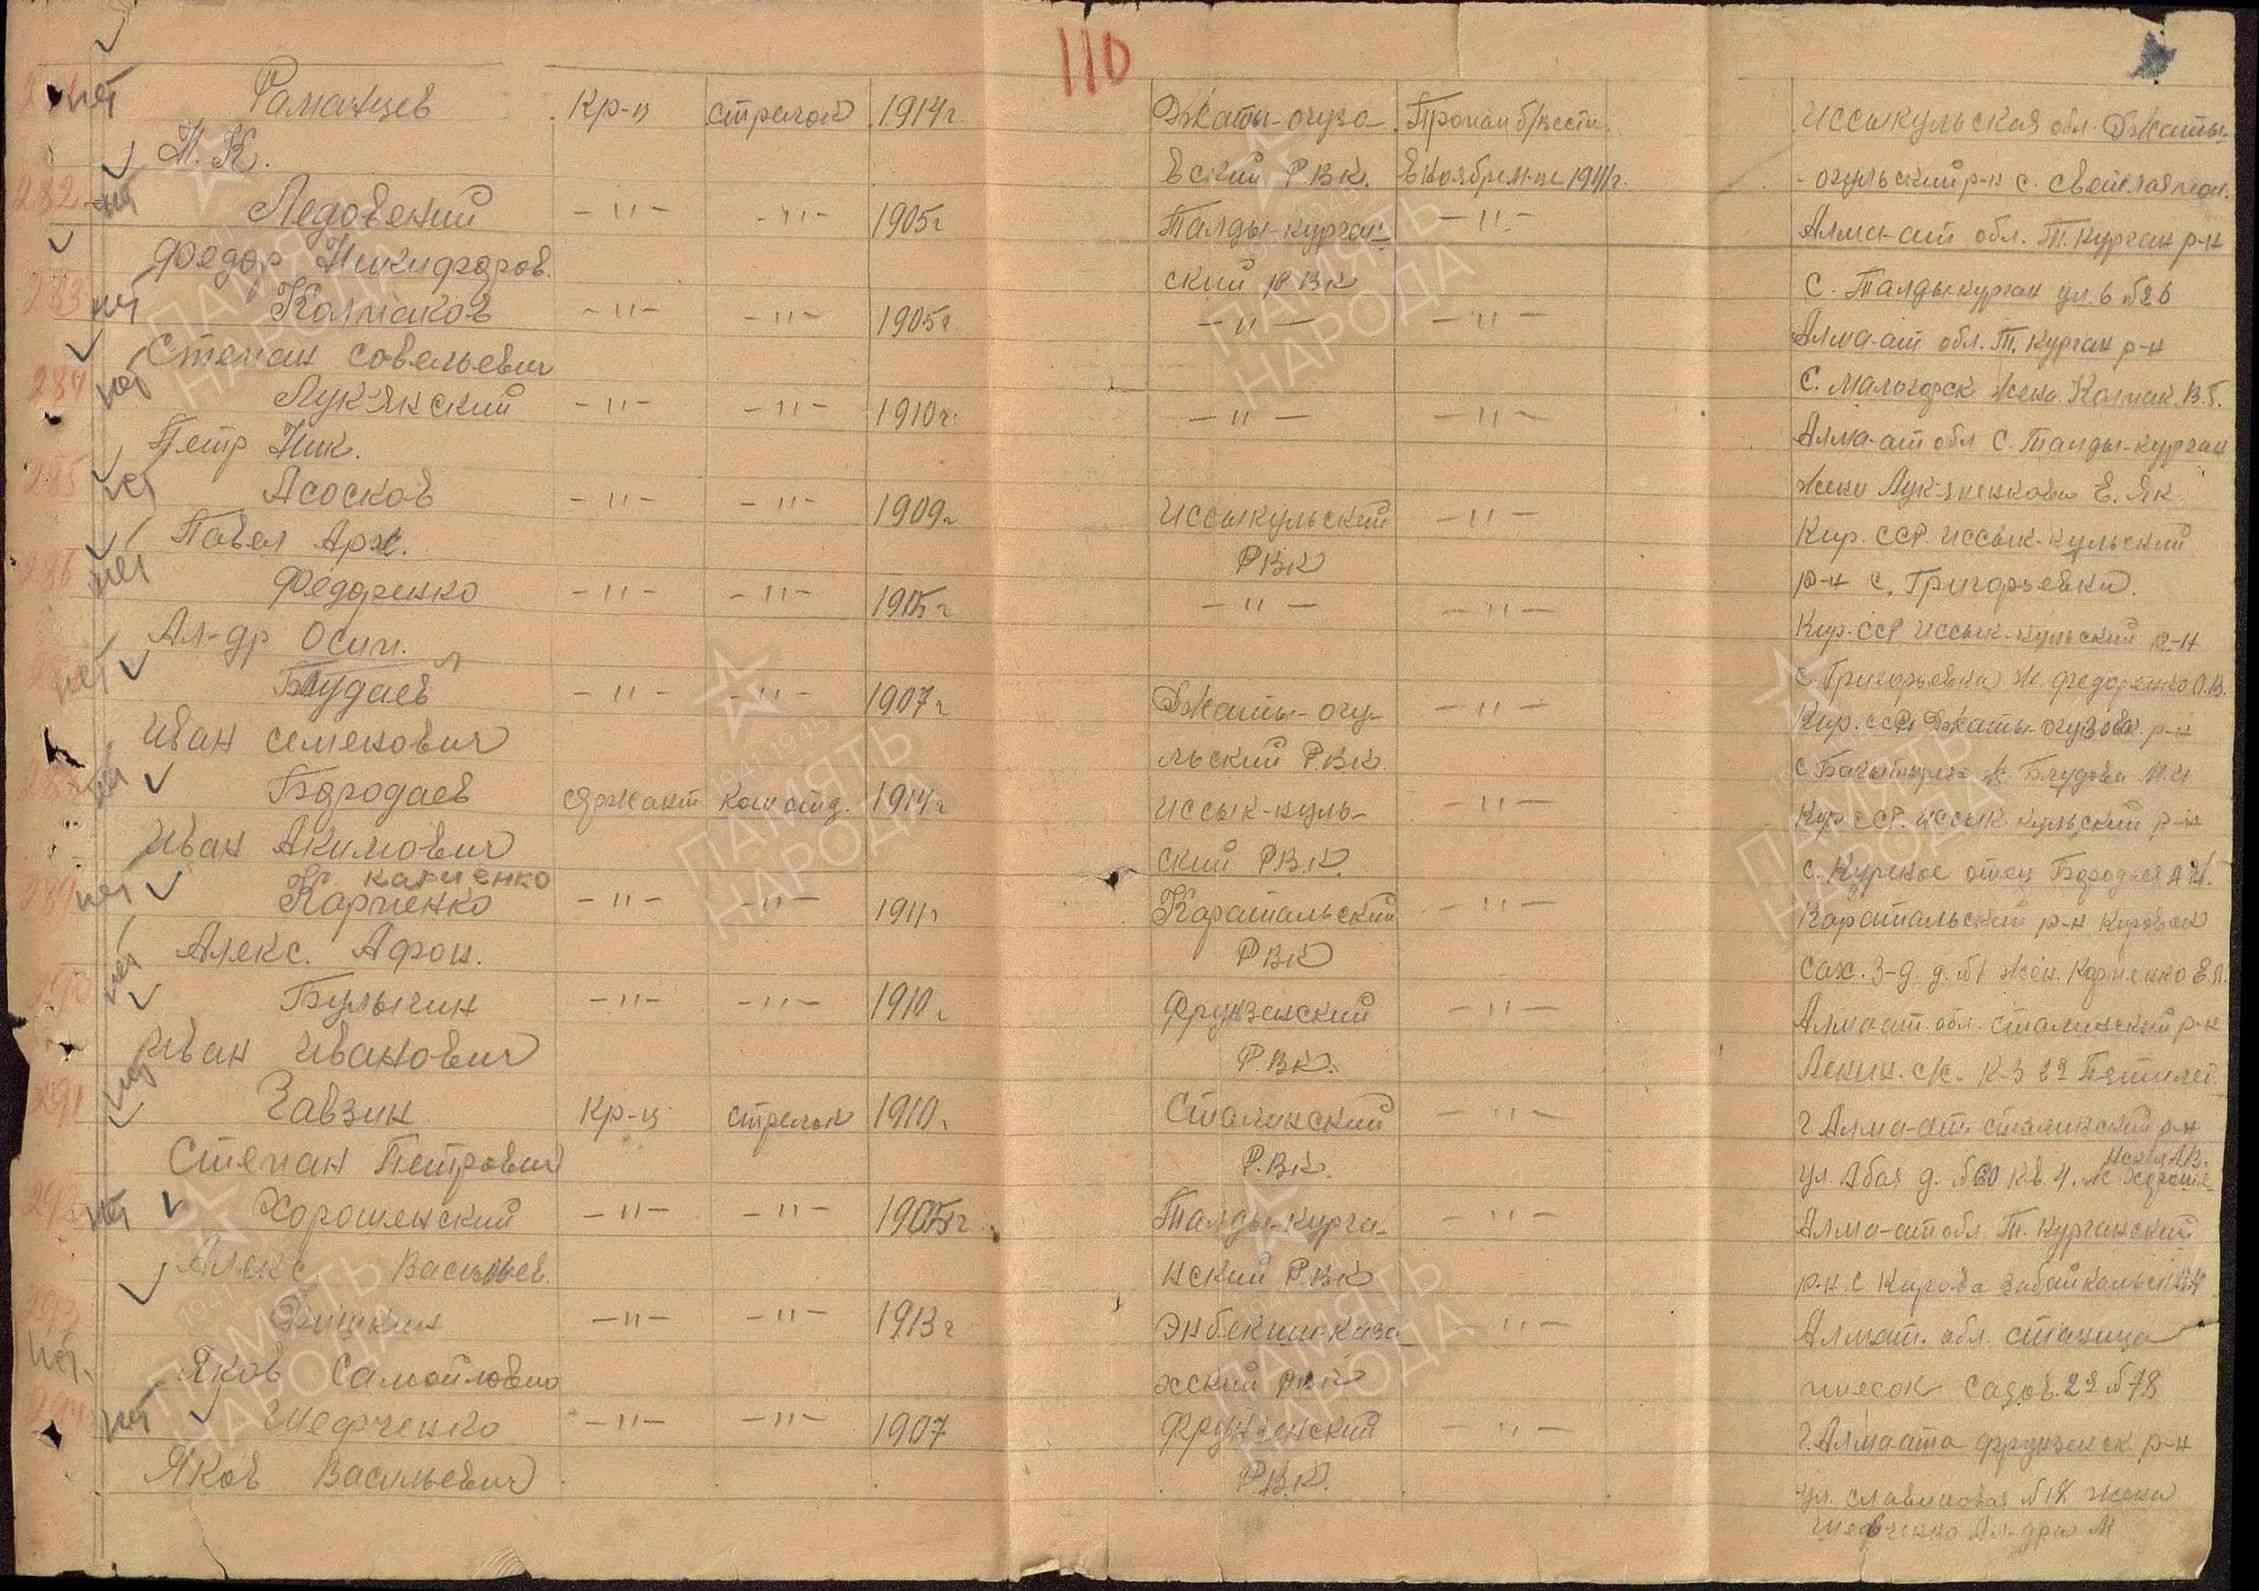 110
281 нет Раманцев Кр-ц стрелок 1914г Джаты-огузо- Пропал б/вести Иссыкульская обл. Джаты-
Н. К. вский РВК. в ноябре м-це 1941г. -огульский р-н с.
282 нет Ледовский -"- -"- 1905г Талды-курган- -"- Алма-ат обл. Т. Курган р-н
Федор Никифоров. ский РВК с. Талды-курган ул. 6 №26
283 нет Колмаков -"- -"- 1905г -"- -"- Алма-ат обл. Т. Курган р-н
Степан Совельевич с. Малогорск жена Колмак. В.Г.
284 нет Лукянский -"- -"- 1910г. -"- -"- Алма-ат обл с. Талды-курган
Петр Ник. жена Е. Як.
285 нет Асосков -"- -"- 1909г Иссыкульский -"- Кир. ССР Иссык-кульский
Павел Арх. РВК р-н с. Григорьевка.
286 нет Федоренко -"- -"- 1905г -"- -"- Кир. ССР Иссык-кульский р-н
Ал-др Осип. с Григорьевка ж. Федоренко О.В.
нет Блудаев -"- -"- 1907г Джаты-огу- -"- Кир. ССР Джаты-огузов. р-н
Иван Семенович льский РВК. с ж. Блудова
288 нет Бородаев сержант ком отд. 1914г Иссык-куль- -"- Кир ССР. Иссык кульский р-н
Иван Акимович ский РВК. с. Курское отец Бородаев А.И.
Карпенко
289 нет Карпенко -"- -"- 1911г Каратальский -"- Каратальский р-н
Алекс. Афон. РВК сах. з-д д. №1 жен. Карпенко Е.П.
290 нет Булыгин -"- -"- 1910г Фрунзенский -"- Алмаат. обл. Сталинский р-н
Иван Иванович РВК. Ленин. с/с. к-з 2я Пятилет
291 нет Завзин Кр-ц стрелок 1910г Сталинский -"- г Алма-ат. Сталинский р-н
Степан Петрович РВК. ул. Абая д. №60 кв. 4.
292 нет Хорошенский -"- -"- 1905г Талды-курга- -"- Алма-ат обл. Т. Курганский
Алекс Васильев. нский РВК р-н с Кирова Забайкальск
293 нет. -"- -"- 1913г Энбекши-каза- -"- Алмат. обл. станица
Яков Самойлович хский РВК садов. 2я №78
294 нет Шефченко -"- -"- 1907 Фрунзенский -"- г. Алмаата фрунзенск р-н
Яков Васильевич РВК. ул. №18 жена
Шевченко Ал-дра М
ПАМЯТЬ НАРОДА